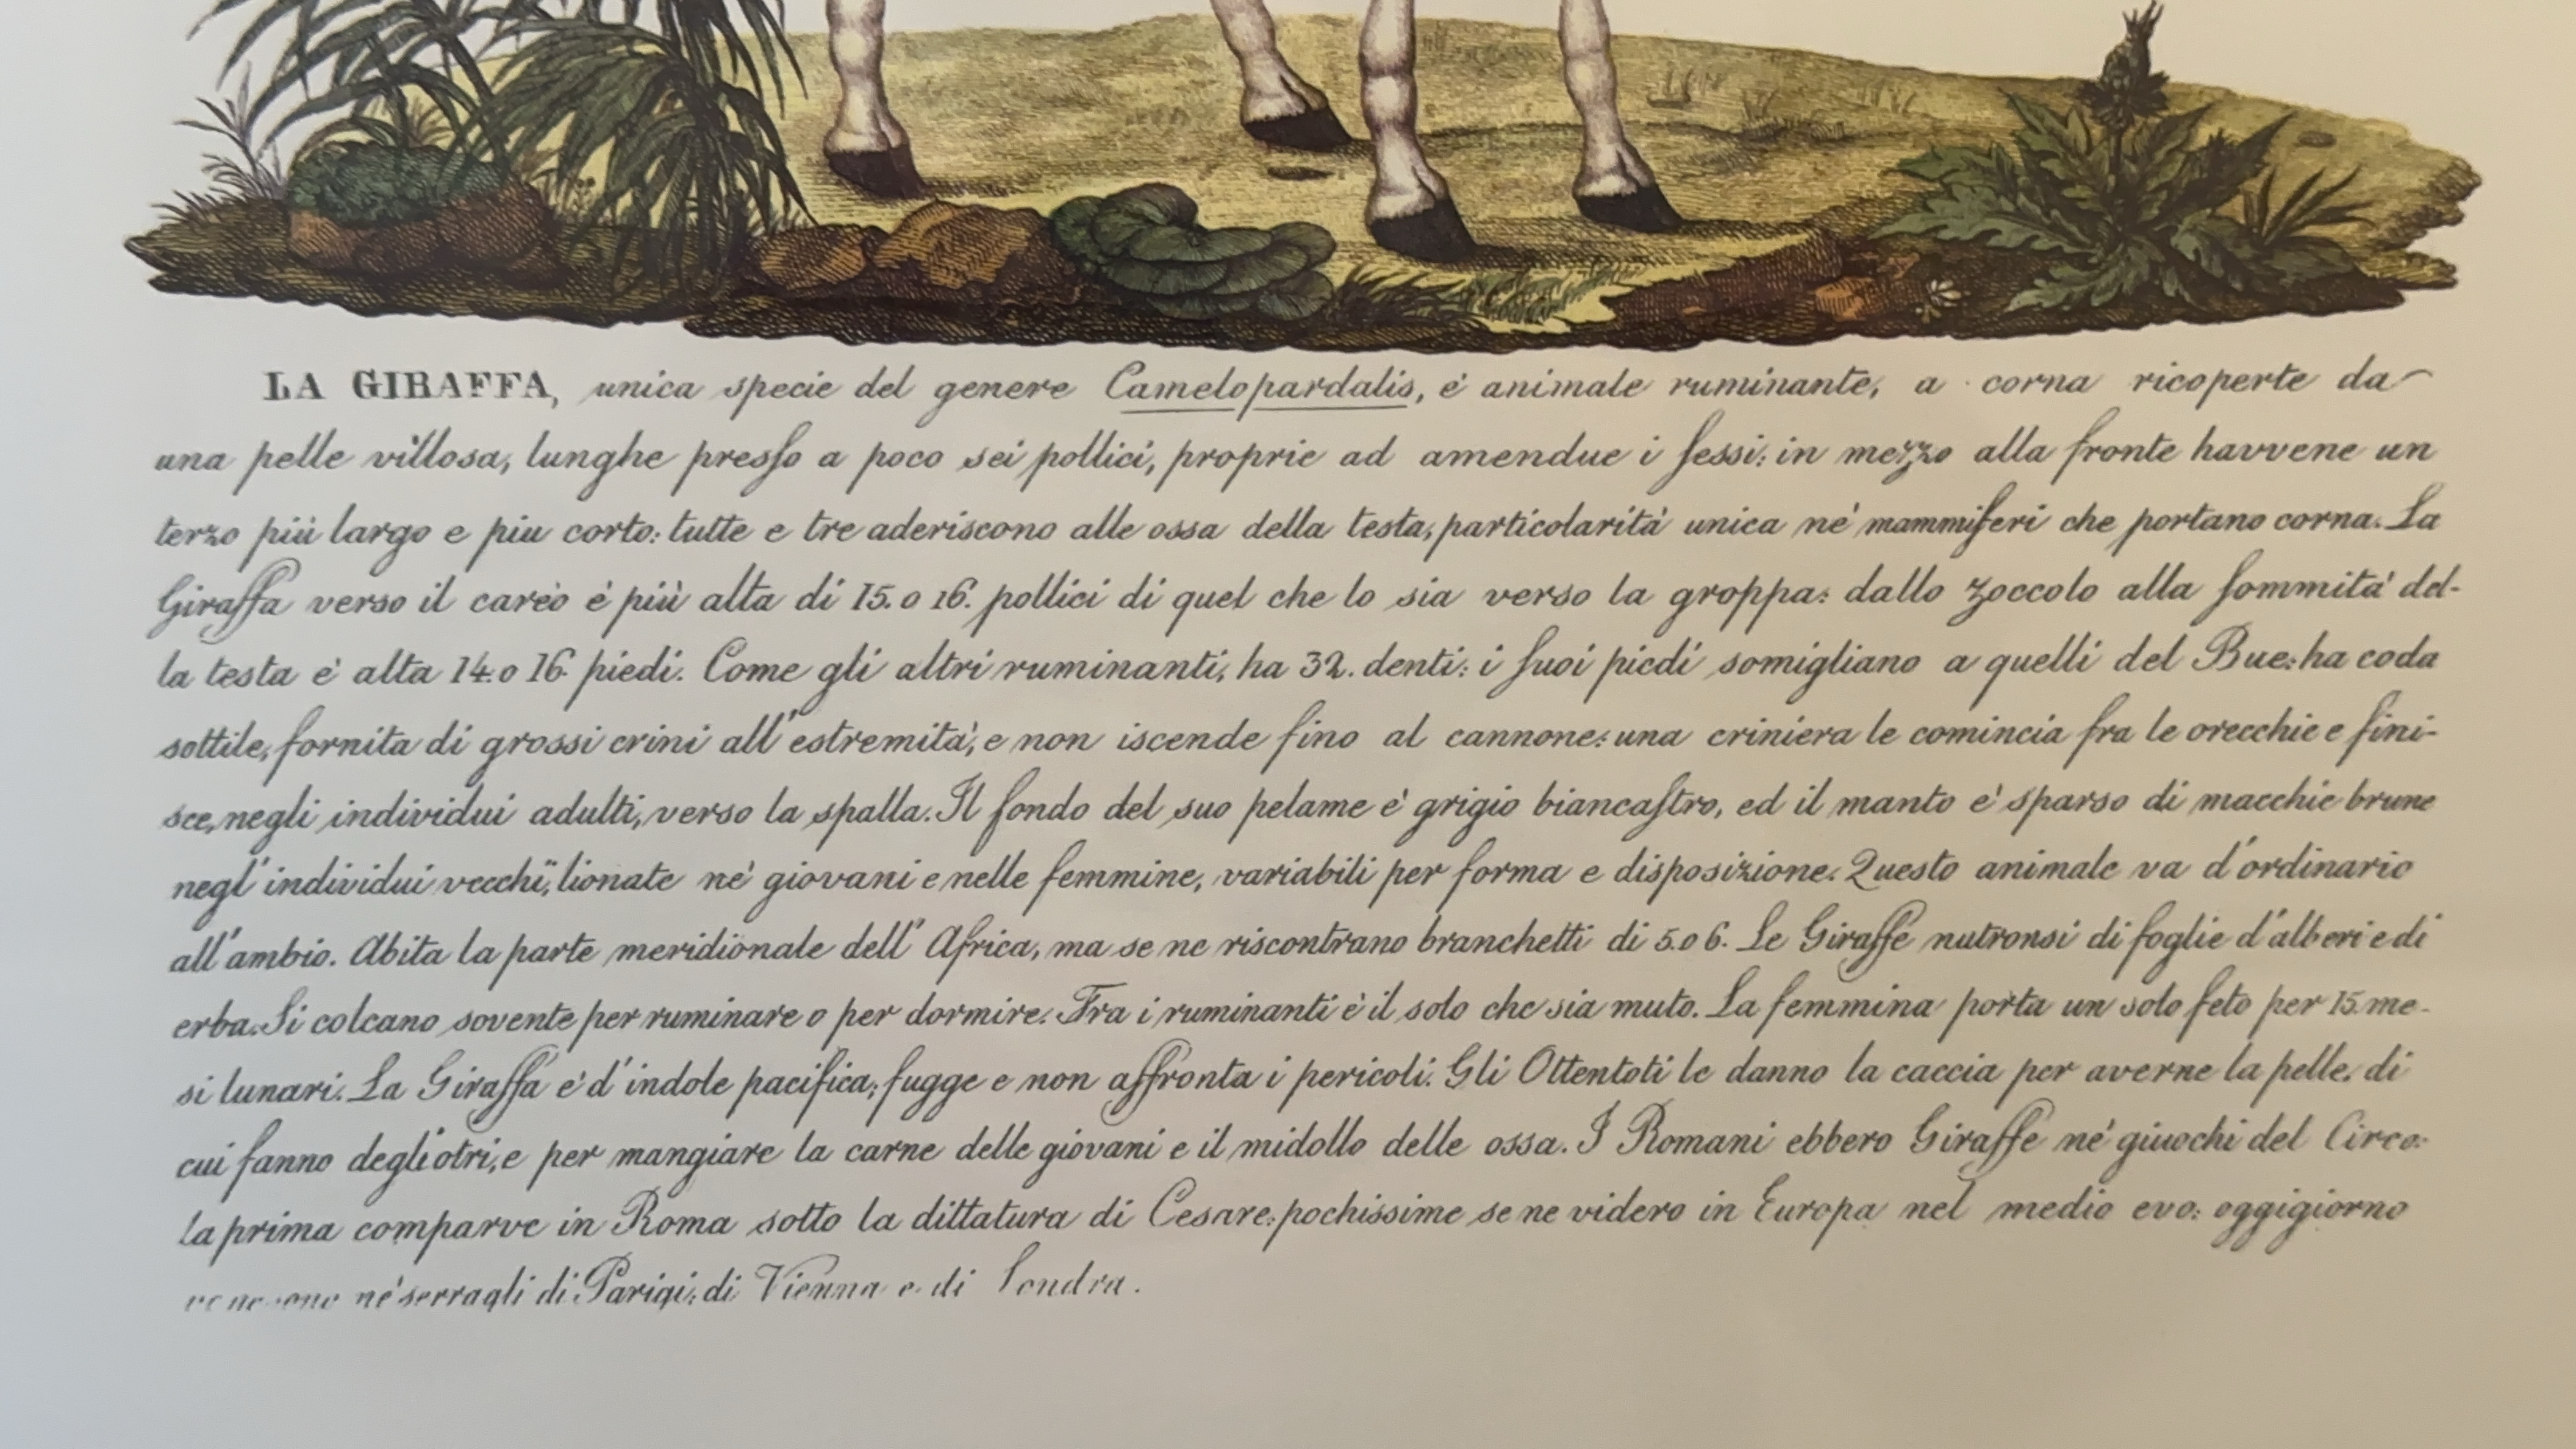 LA GIRAFFA, unica specie del genere Camelopardalis, è animale ruminante, a corna ricoperte da
una pelle villosa, lunghe presso a poco sei pollici, proprie ad amendue i sessi: in mezzo alla fronte havvene un
terzo più largo e piu corto: tutte e tre aderiscono alle ossa della testa, particolarità unica né mammiferi che portano corna. La
Giraffa verso il careo è più alta di 15. o 16. pollici di quel che lo sia verso la groppa: dallo zoccolo alla sommità del-
la testa è alta 14. o 16. piedi. Come gli altri ruminanti, ha 32. denti: i suoi piedi somigliano a quelli del Bue: ha coda
sottile, fornita di grossi crini all'estremità, e non iscende fino al cannone: una criniera le comincia fra le orecchie e fini-
sce, negli individui adulti, verso la spalla. Il fondo del suo pelame è grigio biancastro, ed il manto è sparso di macchie brune
negl'individui vecchi, lionate né giovani e nelle femmine, variabili per forma e disposizione. Questo animale va d'ordinario
all'ambio. Abita la parte meridionale dell'Africa, ma se ne riscontrano branchetti di 5. o 6. Le Giraffe nutronsi di foglie d'alberi e di
erba. Si colcano sovente per ruminare o per dormire. Fra i ruminanti è il solo che sia muto. La femmina porta un solo feto per 15. me-
si lunari. La Giraffa è d'indole pacifica; fugge e non affronta i pericoli. Gli Ottentoti le danno la caccia per averne la pelle, di
cui fanno degli otri, e per mangiare la carne delle giovani e il midollo delle ossa. I Romani ebbero Giraffe né giuochi del Circo:
la prima comparve in Roma sotto la dittatura di Cesare: pochissime se ne videro in Europa nel medio evo: oggigiorno
né serragli di Parigi, di Vienna e di Londra.